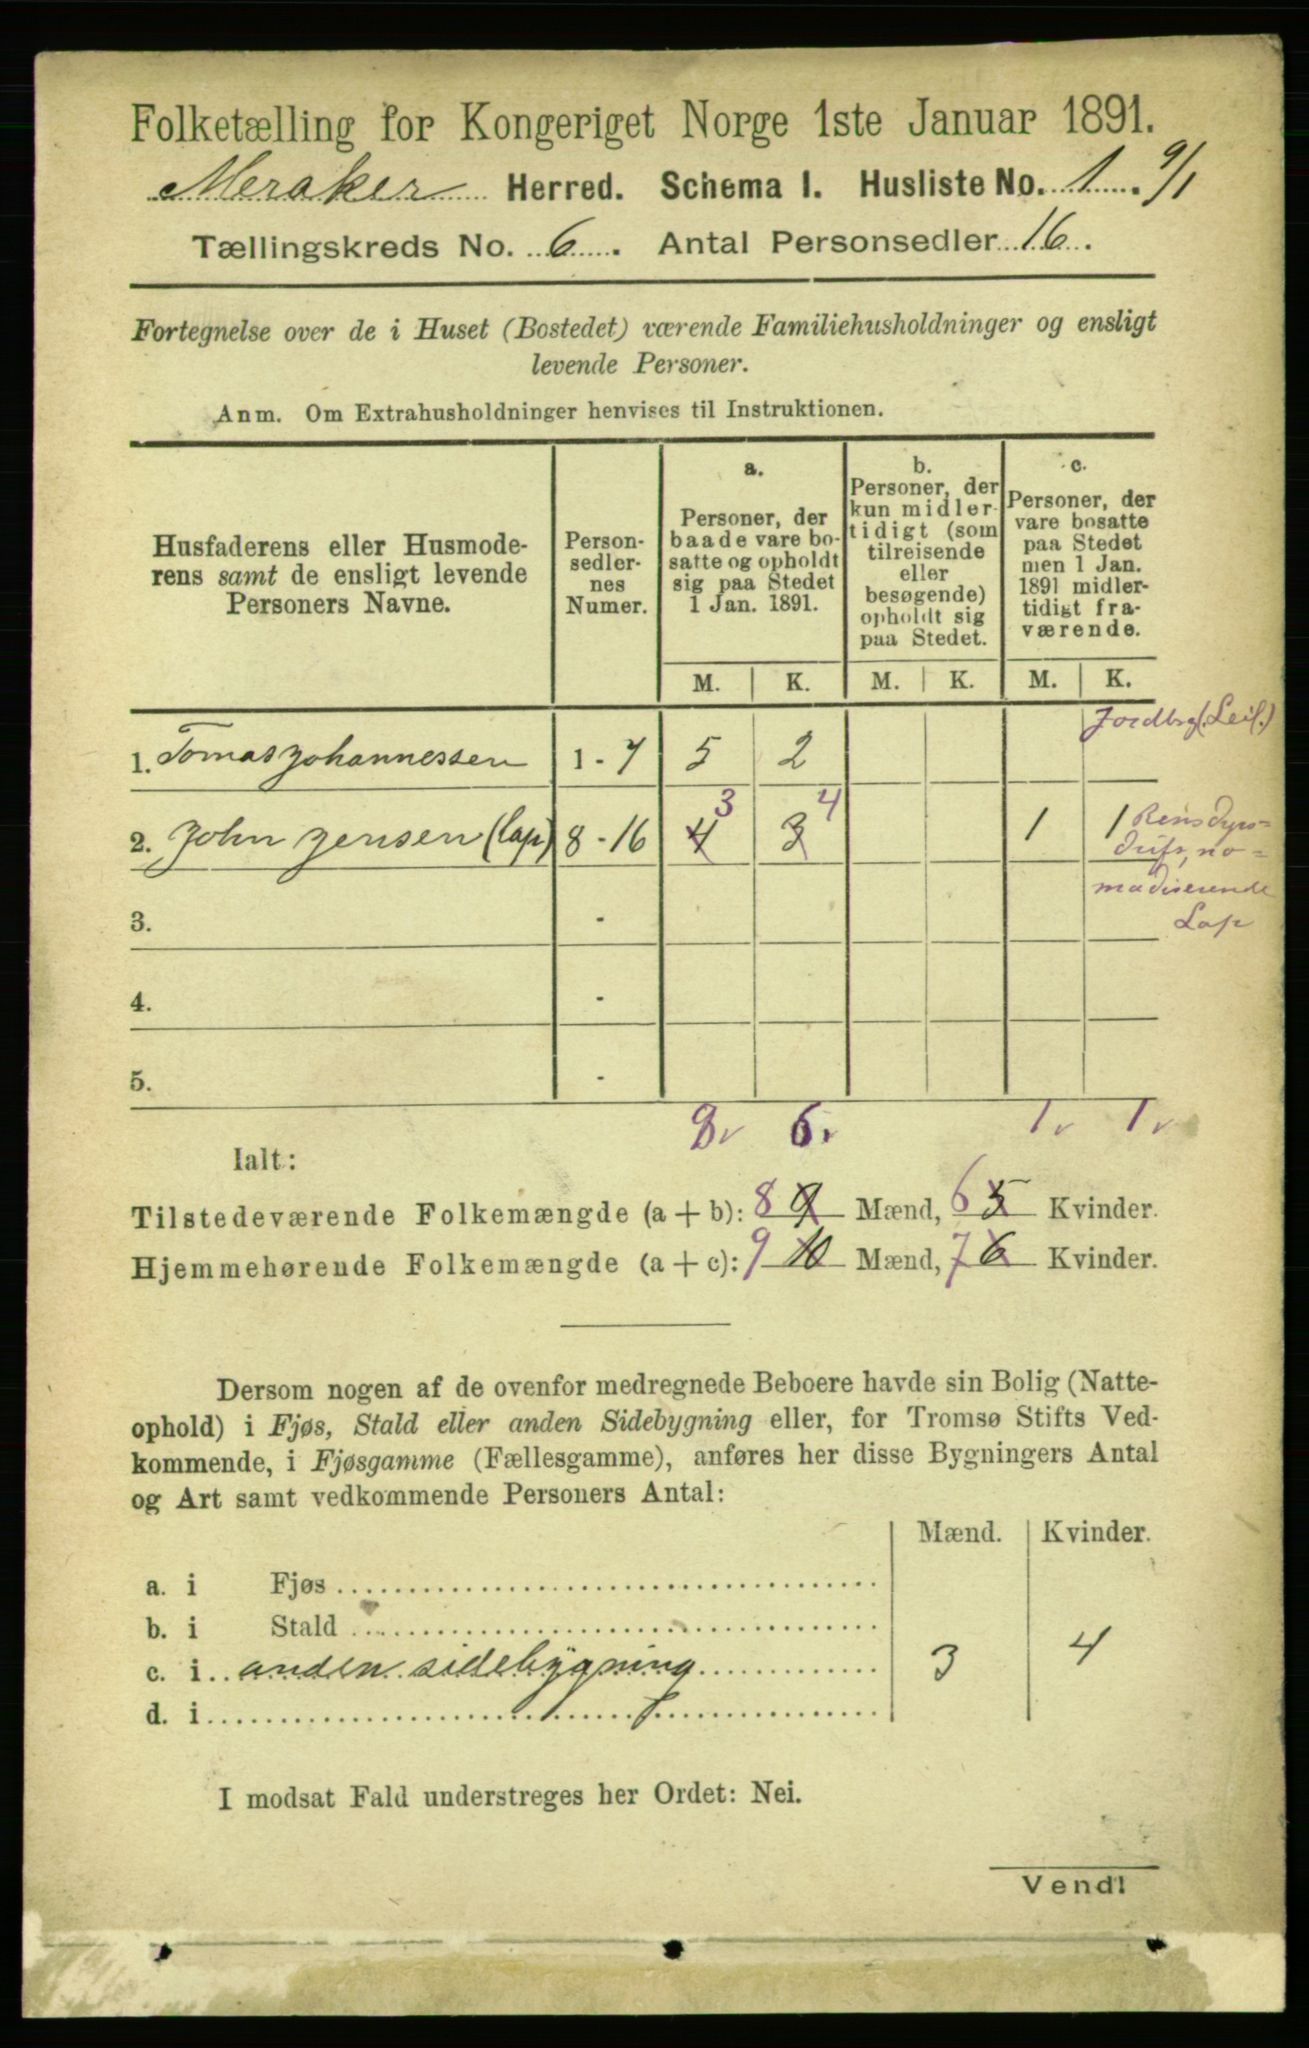 Folketælling for Kongeriget Norge 1ste Januar 1891.
Meraker Herred. Schema 1. Husliste No. 1. 9/1
Tællingskreds No. 6. Antal Personsedler 16.
Fortegnelse over de i Huset (Bostedet) værende Familiehusholdninger og ensligt
levende Personer.
Anm. Om Extrahusholdninger henvises til Instruktionen.
Husfaderens eller Husmode-
rens samt de ensligt levende
Personers Navne.
Person-
sedler-
nes
Numer.
a.
Personer, der
baade vare bo-
satte og opholdt
sig paa Stedet
1 Jan. 1891.
b.
Personer, der
kun midler-
tidigt (som
tilreisende
eller
besøgende)
opholdt sig
paa Stedet.
c.
Personer, der
vare bosatte
paa Stedet
men 1 Jan.
1891 midler-
tidigt fra-
værende.
M. K. M. K. M. K.
Jordbrg. (Leil.)
1. Tomas Johannessen 1 - 7 5 2
3 4
2. John Jensen (Lap) 8 - 16 4 3 1 1 Rensdyrs-
drift, no-
madiserende
Lap
3. -
4. -
5. -
8 6 1 1
Ialt:
Tilstedeværende Folkemængde (a + b): 8 9 Mænd, 6 5 Kvinder.
Hjemmehørende Folkemængde (a + c): 9 10 Mænd, 7 6 Kvinder.
Dersom nogen af de ovenfor medregnede Beboere havde sin Bolig (Natte-
ophold) i Fjøs, Stald eller anden Sidebygning eller, for Tromsø Stifts Ved-
kommende, i Fjøsgamme (Fællesgamme), anføres her disse Bygningers Antal
og Art samt vedkommende Personers Antal:
Mænd. Kvinder.
a. i Fjøs
b. i Stald
c. i anden sidebygning 3 4
d. i
I modsat Fald understreges her Ordet: Nei.
Vend!